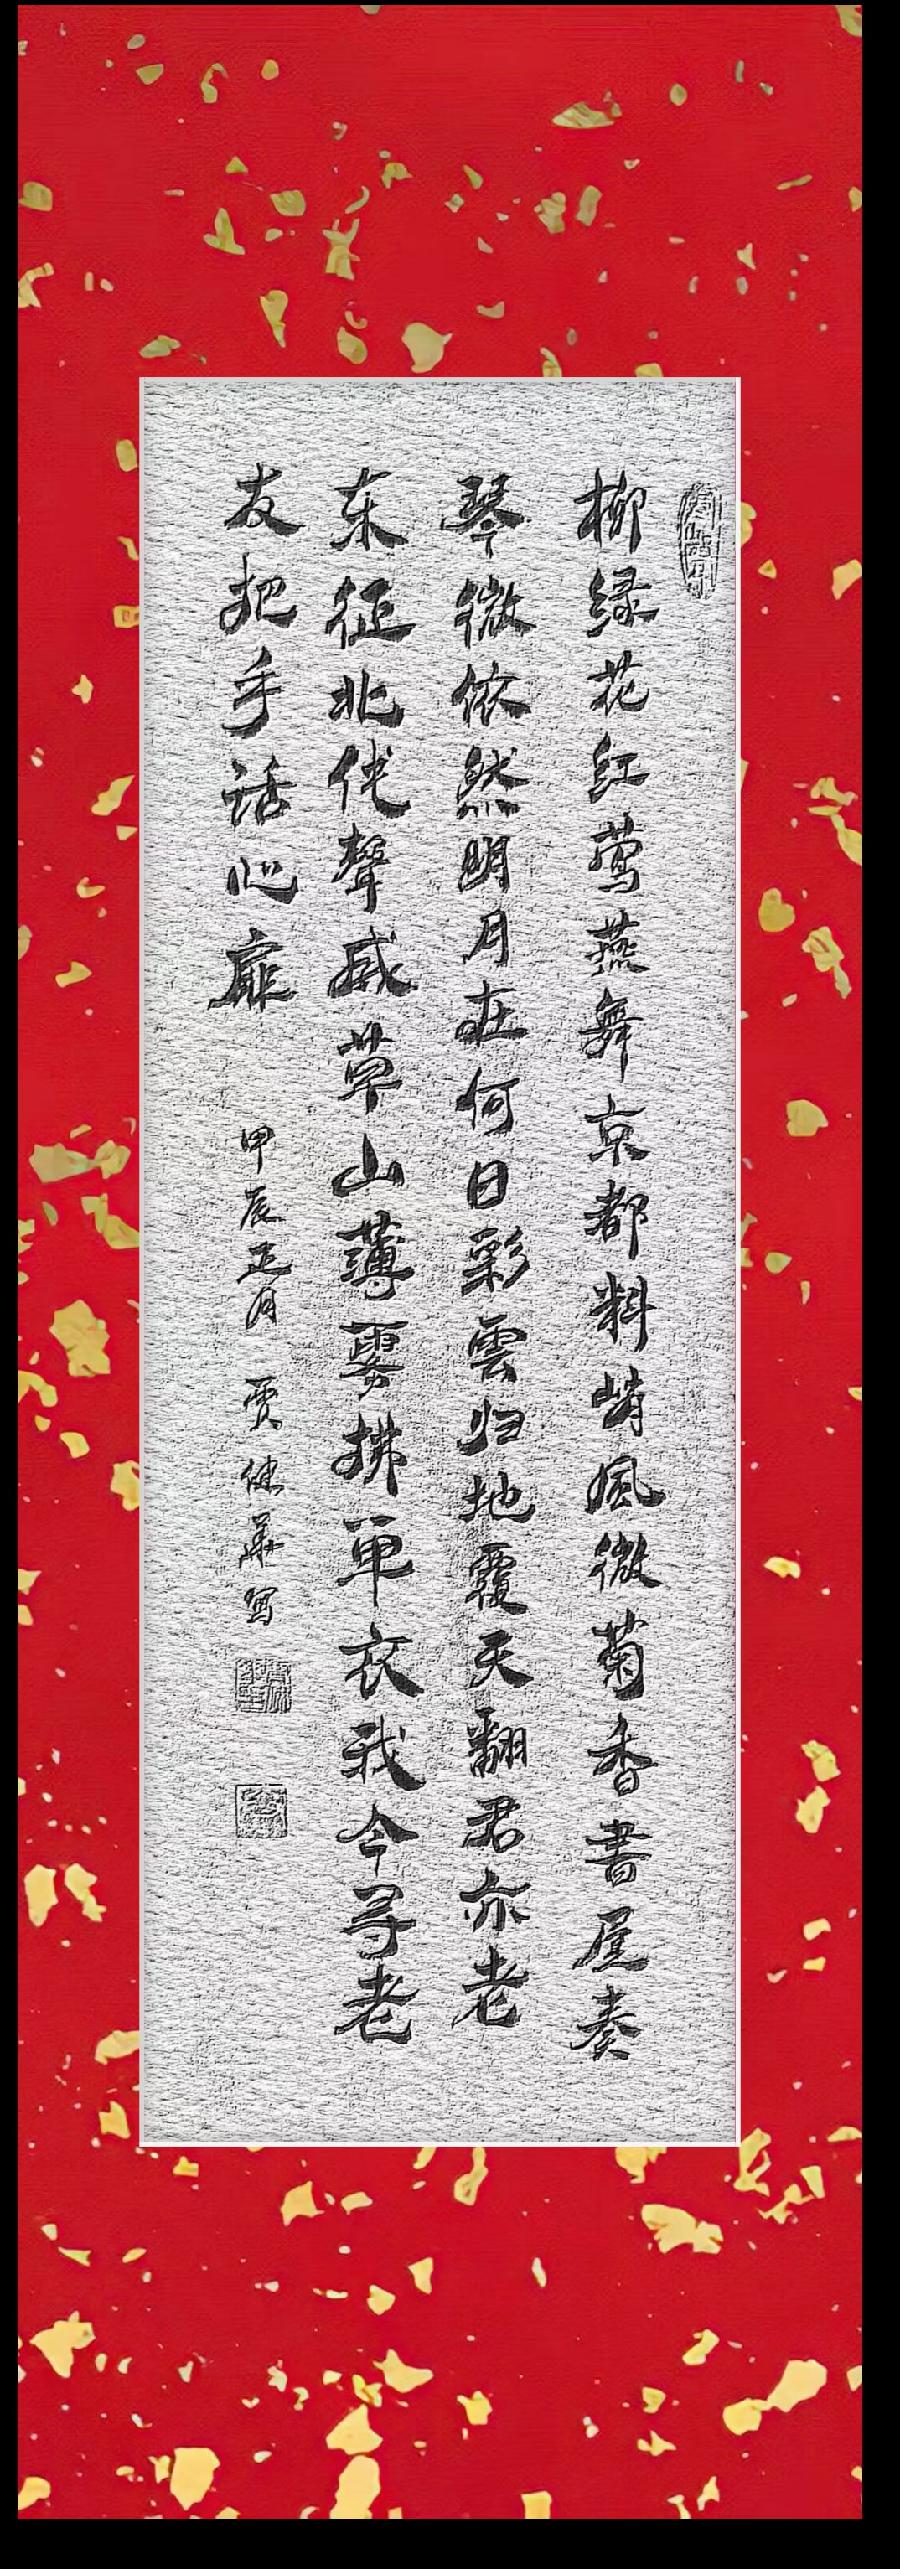 柳绿花红莺燕舞京都料峭风微菊香书屋奏
琴微依然明月在何日彩雲归地覆天翻君亦老
东征北伐聲威草山薄雾拂单衣我今寻老
友把手话心扉
甲辰正月 贾继华写